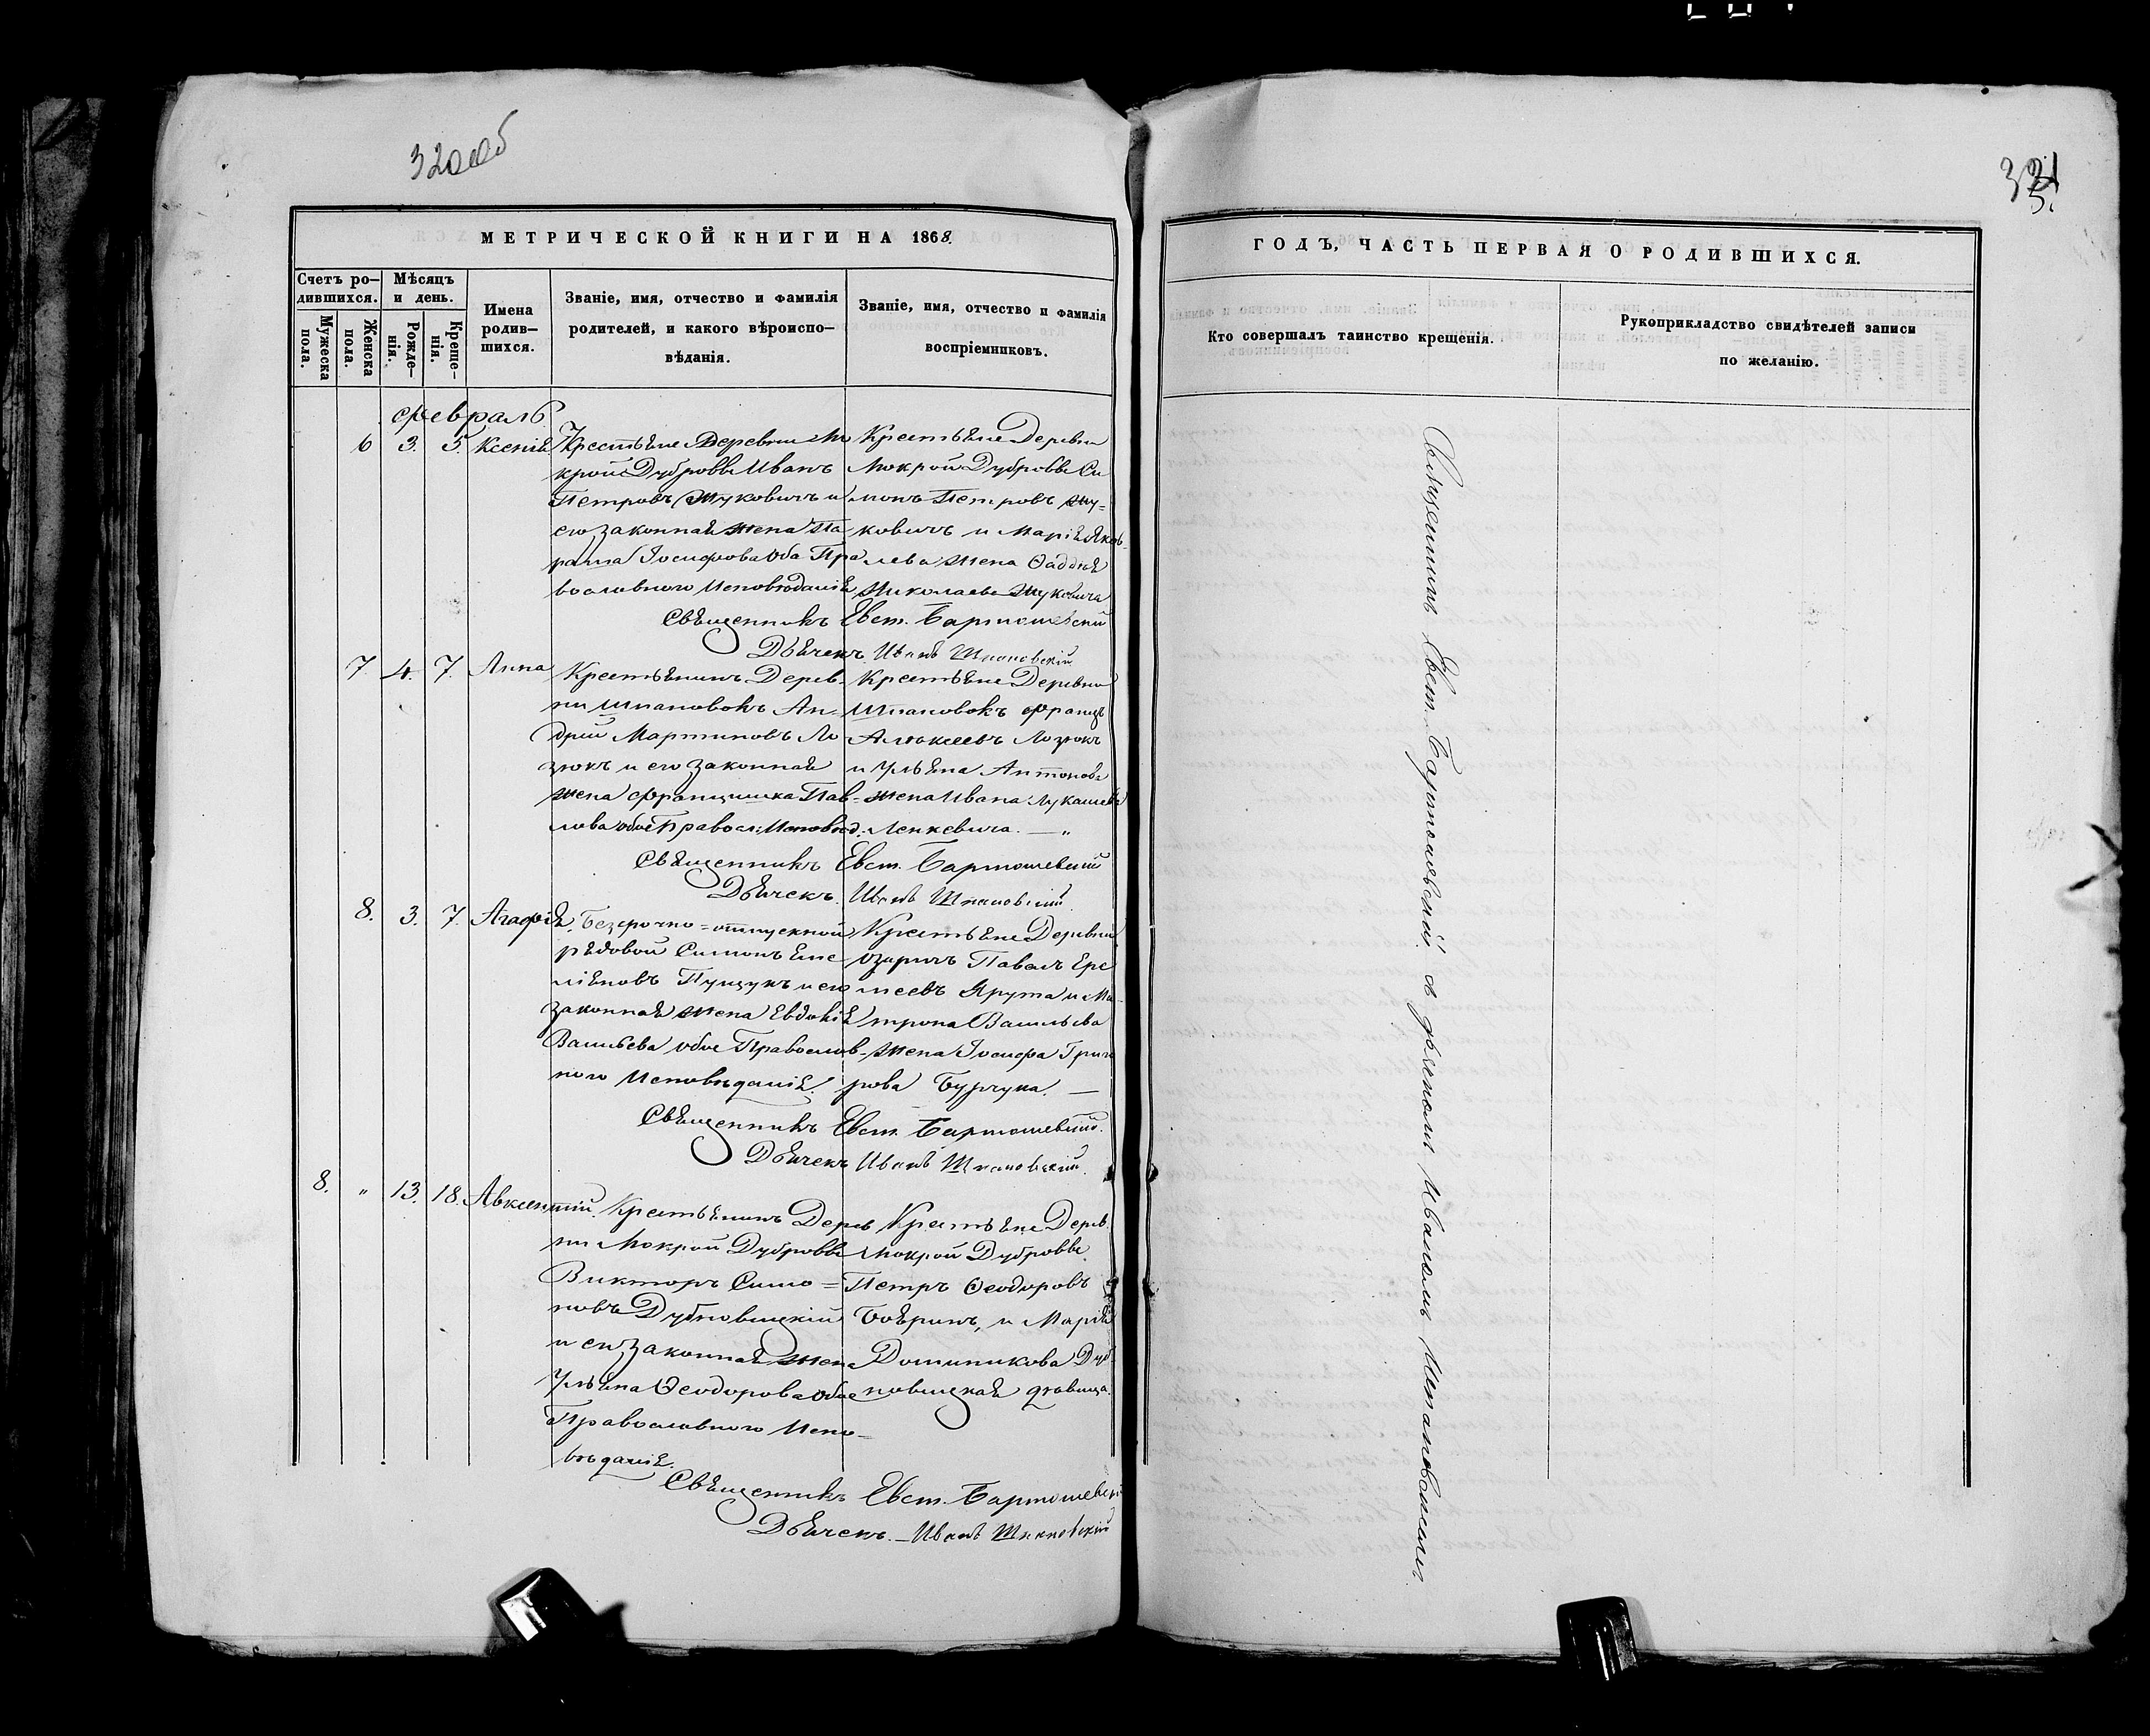 320об
331
МЕТРИЧЕСКОЙ КНИГИ НА 1868.
ГОДЪ, ЧАСТЬ ПЕРВАЯ О РОДИВШИХСЯ.
Счетъ ро-
дившихся.
Мужеска
пола.
Женска
пола.
Мѣсяцъ
и день.
Рожде-
нія.
Креще-
нія.
Имена
родив-
шихся.
Званіе, имя, отчество и фамилія
родителей, и какого вѣроиспо-
вѣданія.
Званіе, имя, отчество и фамилія
воспріемниковъ.
Кто совершалъ таинство крещенія.
Рукоприкладство свидѣтелей записи
по желанію.
февраль
6 3. 5. Ксенія
Крестьяне Деревни Мо
крой Дубровы Иванъ
Петровъ Жуковичъ и
его законная жена Па
рапа Іосифова оба Пра
вославного Исповѣданія
Крестьяне Деревни
Мокрой Дубровы Си
монъ Петровъ Жу-
ковичъ и Марія Яков-
лева жена Фаддея
Николаева Жуковича
Священникъ Евст. Бартошевскій
Дьячекъ Иванъ Шпановскій
7. 4. 7. Анна
Крестьянинъ Дерев-
ни Шпановокъ Ан-
дрей Мартиновъ Ло-
зюкъ и его законная
жена Францишка Пав-
лова обое Правосл: Исповѣд:
Крестьяне Деревни
Шпановокъ Францъ
Алексеевъ Лозюкъ
и Ульяна Антонова
жена Ивана Лукашева
Ленкевича. — "
Священникъ Евст. Бартошевскій
Дьячекъ. Иванъ Шпановскій.
8. 3. 7. Агафія
Безсрочно=отпускной
рядовой Симонъ Еме
ліяновъ Пущукъ и его
законная жена Евдокія
Васильева обое Православ-
ного Исповѣданія.
Крестьяне Деревни
Озаричъ Павелъ Ере
меевъ Ярута и Ма-
трона Васильева
жена Іосифа Григо
рова Бурчука. —
Священникъ Евст. Бартошевскій.
Дьячекъ Иванъ Шпановскій.
8. " 13. 18. Авксентій.
Крестьянинъ Дерев
ни Мокрой Дубровы
Викторъ Симо=
новъ Дубновицкій
и его законная жена
Ульяна Феодорова обое
Православного Испо-
вѣданія.
Крестьяне Дерев.
Мокрой Дубровы
Петръ Феодоровъ
Бояринъ, и Марія
Доминикова Дуб-
новицкая дѣвица.
Священникъ Евст. Бартошевскій
Дьячекъ. — Иванъ Шпановскій
Священникъ Евст. Бартошевскій съ дьячкомъ Иваномъ Шпановскимъ.